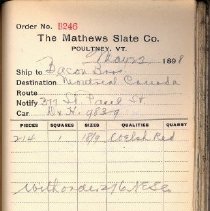 Order No. B246
The Mathews Slate Co.
POULTNEY, VT.
May 22 1898
Ship to Bacon Bros
Destination Montreal Canada
Route
Notify 207 St. Paul St
Car
PIECES SQUARES SIZES QUALITIES QUARRY
214 1 18/9 Welsh Red
With order